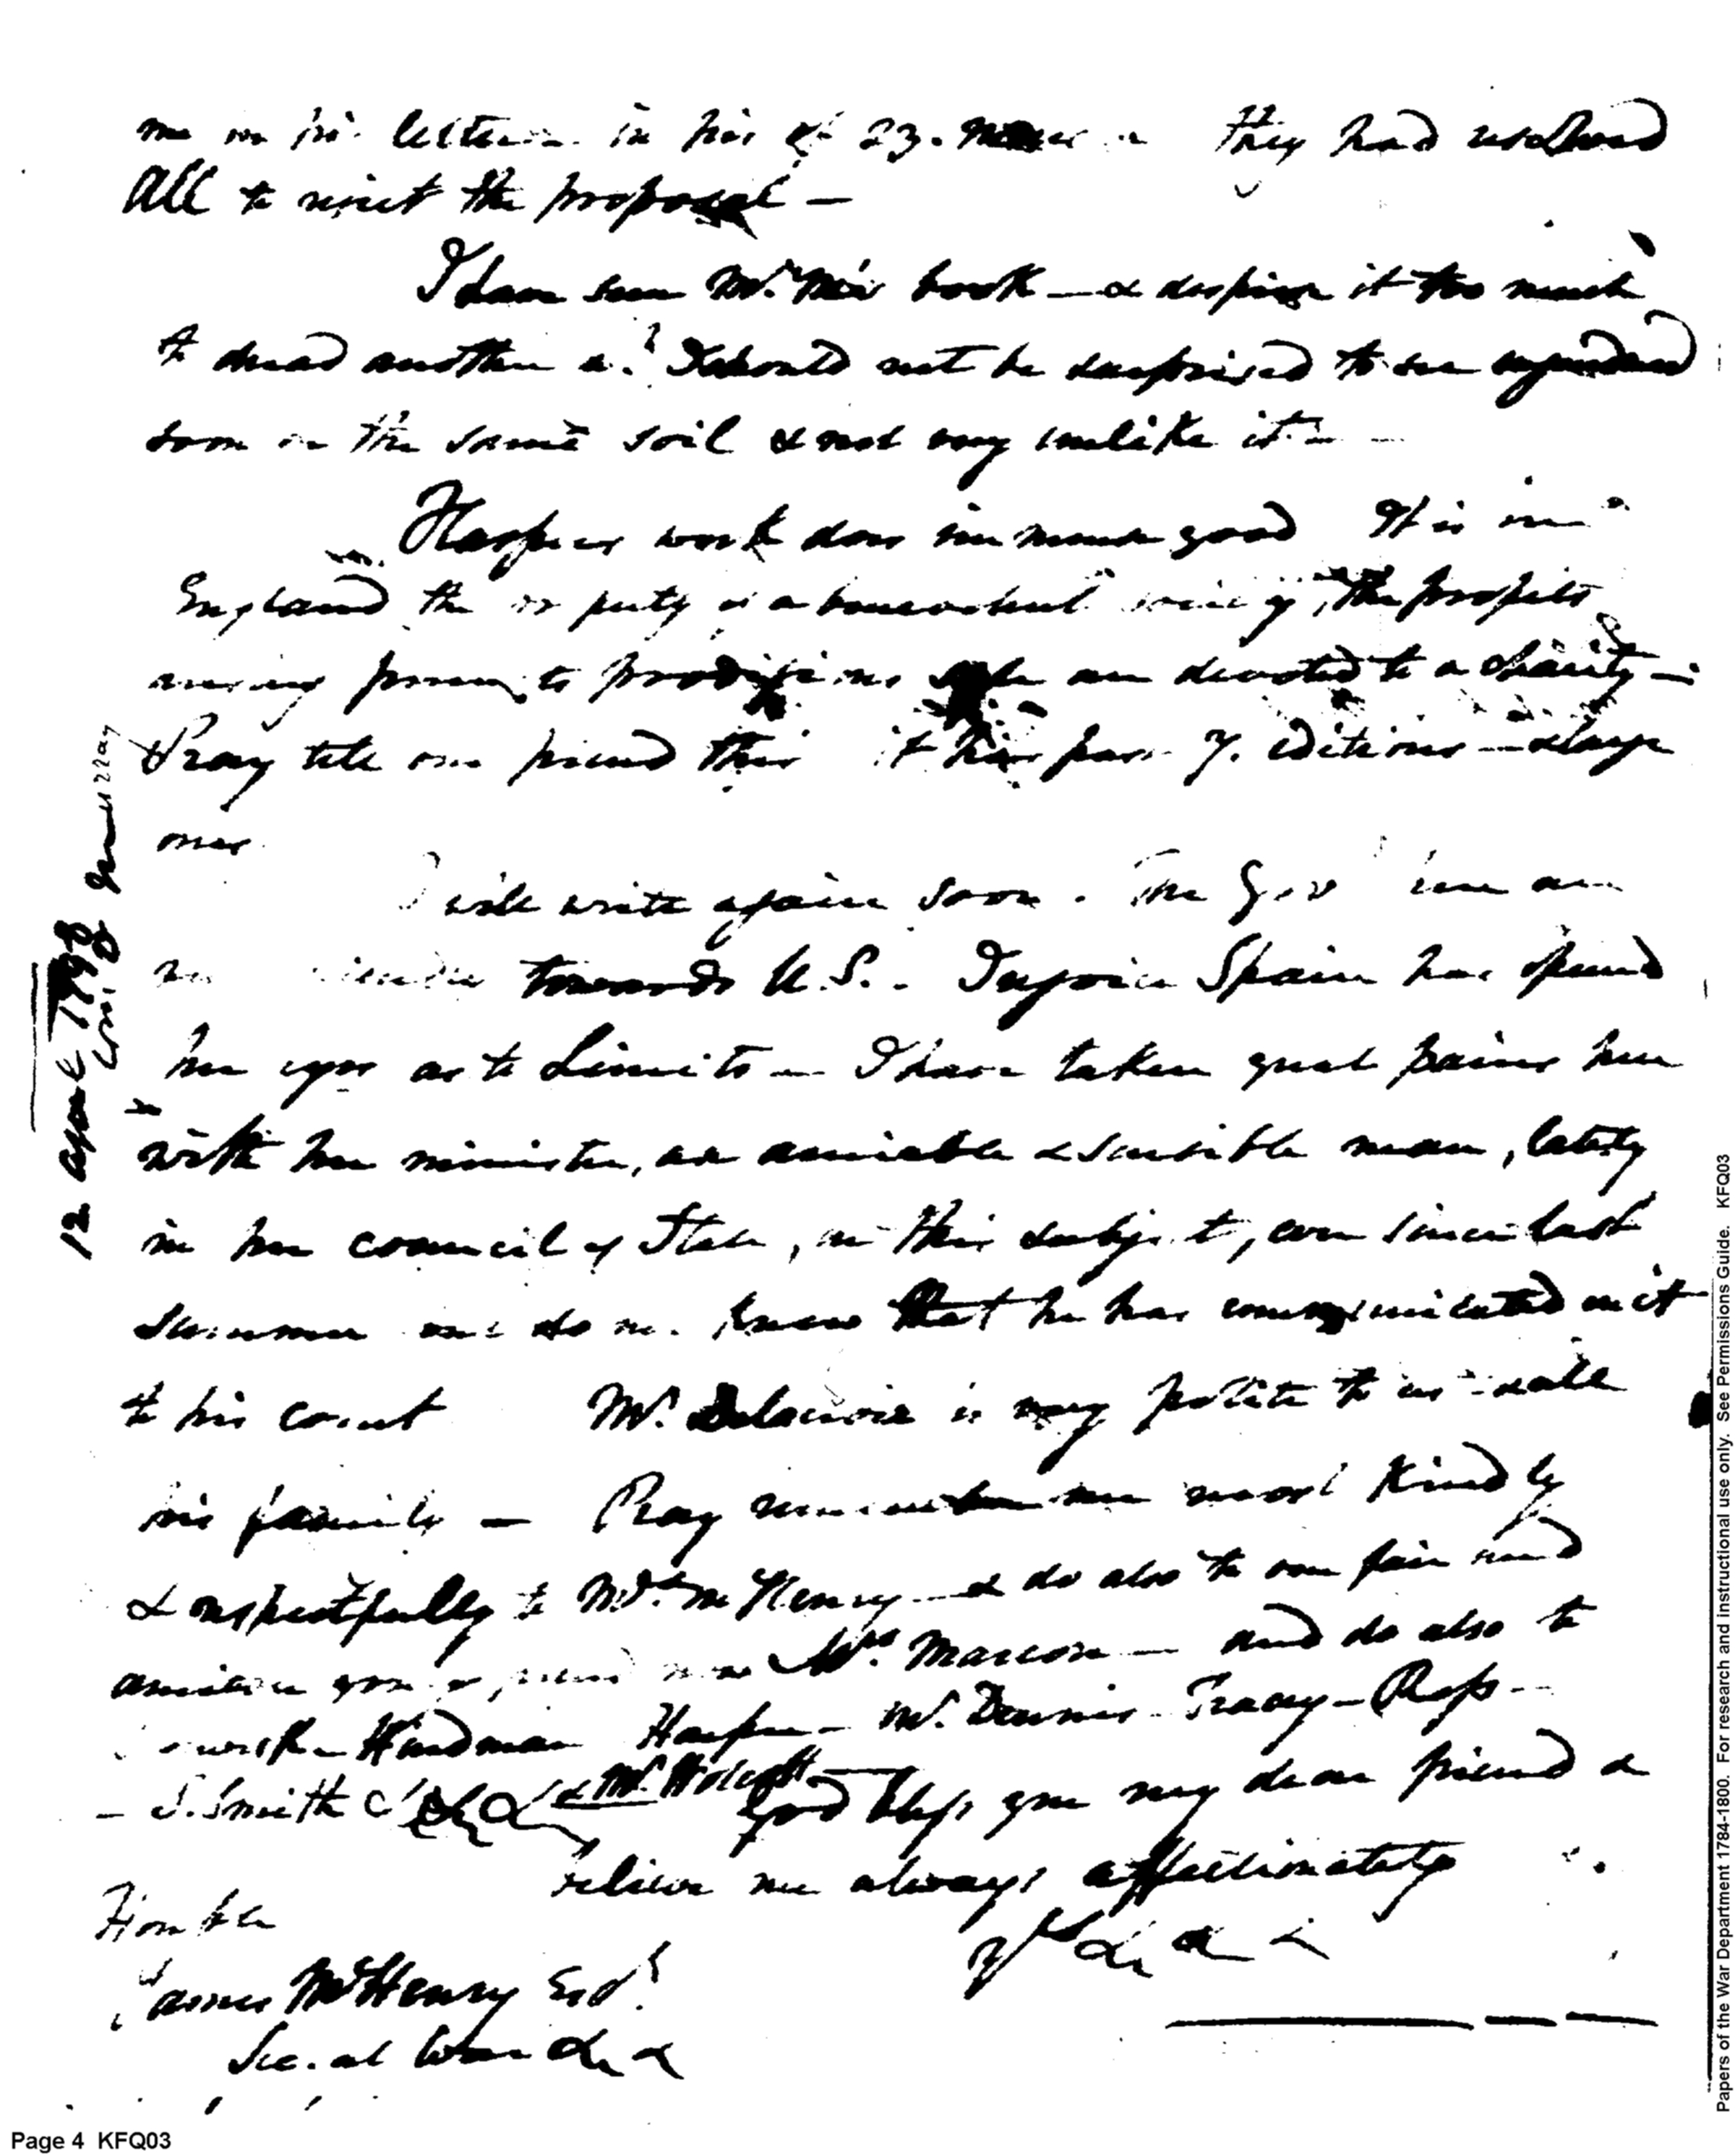 me in his letter in his of 23. they had resolved
All to resist the proposal —
I have seen Mr. Mo's book — & despise it too much
to dread another & I should not be surprised to see
soon on the same soil & not very unlike it —
Harper's work does immense good It is in
England the property of a benevolent society, the profits
arising from its prodigious sale are devoted to a charity —
Pray tell our friend this it has pass 7. Editions — large
ones
I will write again soon. The Gov here are
towards U.S. I rejoice Spain has opened
her eyes as to Limits — I have taken great pains here
with her minister, an amiable & sensible man, lately
in her council of State, on this subject, ever since last
summer and do know that he has communicated on it
to his court Mr. is very polite to us & all
his family — Pray remember me most kindly
& respectfully to Mrs. McHenry — & do also to our fair and
Mrs. Marcon — and do also to
Hindman Harper — Mr. Dennis — Tracy — Ross —
— S. Smith &c &c & Mr. Wolcott — God bless you my dear friend &
believe me always affectionately
Yrs &c &c
Honble
James McHenry Esqr.
Sec. at War &c &c
12 April 1798
Murray
Page 4 KFQ03
Papers of the War Department 1784-1800. For research and instructional use only. See Permissions Guide. KFQ03